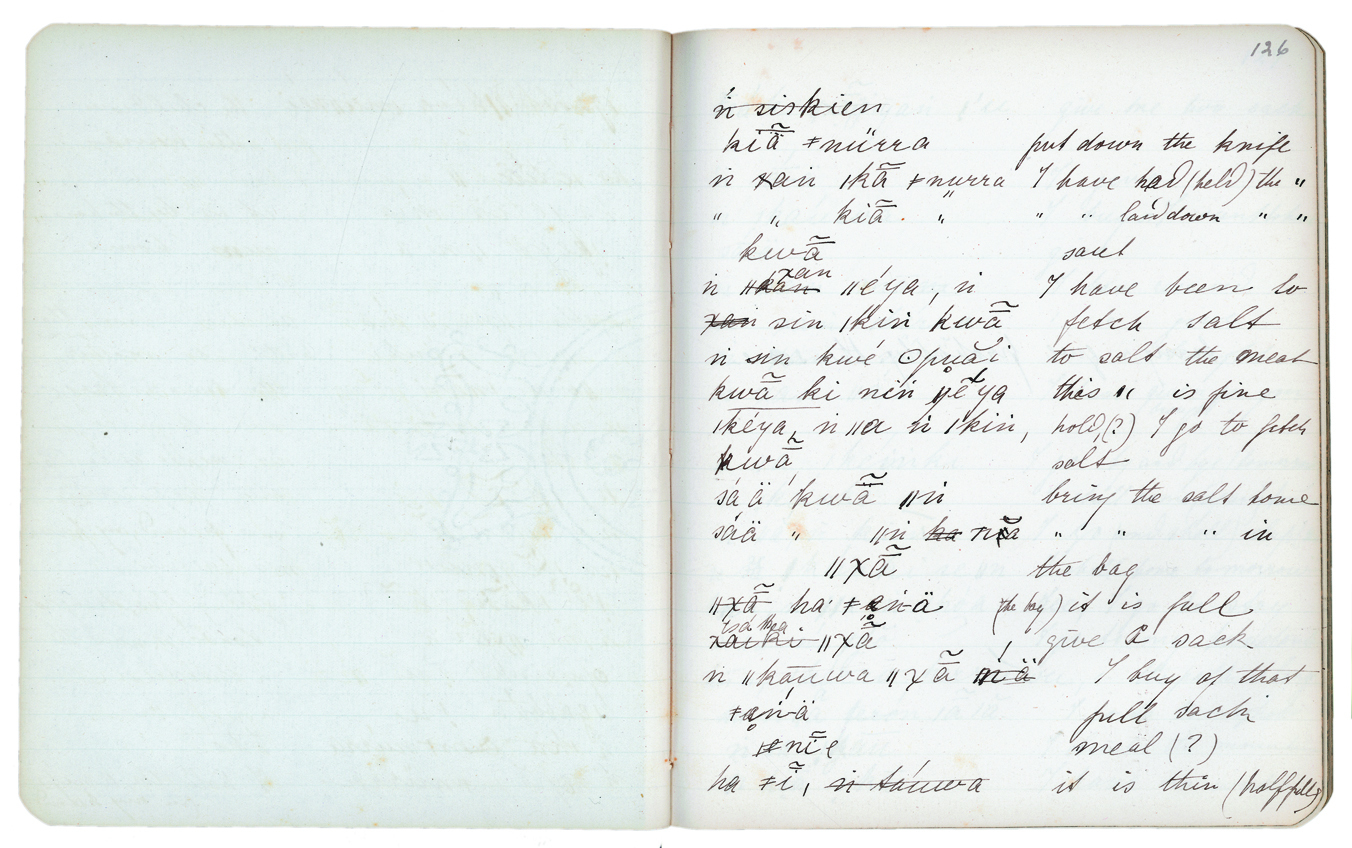 126
ṅ siskien
kiã̄ ǂnŭrra put down the knife
ṅ χan ǀkã̄ ǂnurra I have had (held) the "
" " kiã̄ " " " laid down " "
kwã̄ saut
χan
ṅ ǁkan ǁéya, ṅ I have been to
χan sin ǀkiṅ kwã̄ fetch salt
ṅ sin kwé ʘpuăi to salt the meat
kwã̄ ki neṅ ya this " is fine
ǀkéya, ṅ ǁa ṅ ǀkiṅ, hold, (?) I go to fetch
kwã̄ salt
sáä kwã̄ ǁṅ bring the salt home
sáä " ǁṅ ka " " " in
ǁχã̄ the bag
ǁχã̄ ha ǂaṅ-ä (the bag) it is full
ǁχã̄ give a sack
ṅ ǁkauwa ǁχã̄ ṅ ä I buy of that
ǂaṅ-ä full sack
ǂnĩe meal (?)
ha ǂĩ, ṅ táuwa it is thin (half full)